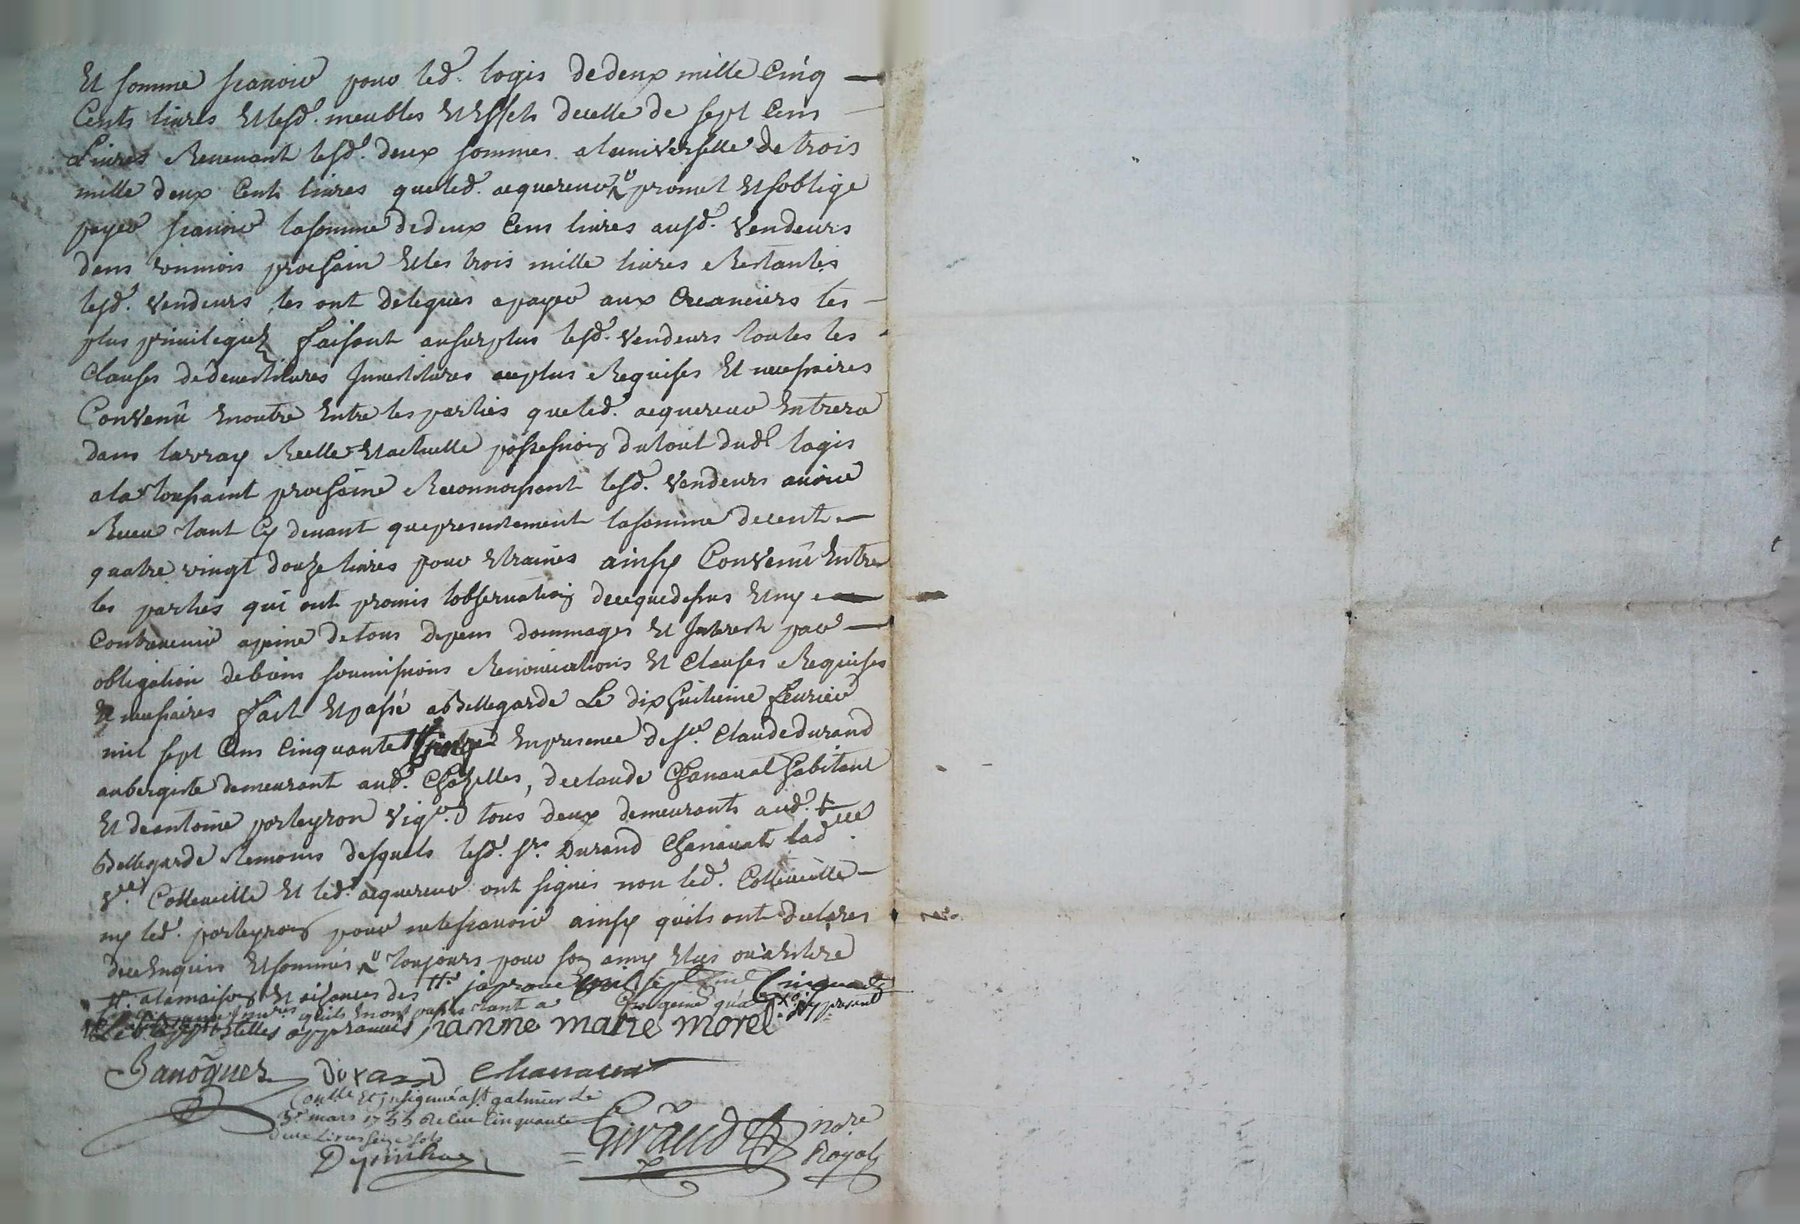 Et somme scavoir pour led. logis de deux mille Cinq
Cents livres Et lesd. meubles Et Effets de celle de sept Cens
Livres Revenant lesd. deux sommes a luniverselle de trois
mille deux Cents livres que led. acquereur promet Et soblige
payer scavoir la somme de deux Cens livres ausd. Vendeurs
dans un mois prochain Et les trois mille livres Restantes
lesd. Vendeurs les ont delegues a payer aux Creanciers les
plus privilegiez faisant au surplus lesd. Vendeurs toutes les
Clauses de devestitures Investitures au plus Requises Et necessaires
Convenû En outre Entre les parties que led. acquereur Entrera
dans la vray Reelle Et actuelle possession du tout dud. logis
a la toussaint prochaine Reconnoissent lesd. Vendeurs avoir
Receu tant Cy devant que presentement la somme de cent
quatre vingt douze livres pour Etraines ainsy Convenû Entre
les parties qui ont promis lobservation de ce que dessus Et ny
Contrevenir a peine de tous depens dommages Et Interests par
obligation de biens soumissions Renonciations Et Clauses Requises
Et necessaires fait Et passé a Bellegarde Le dix huitieme fevrier
mil sept Cens Cinquante Cinq En presence de sr. Claude durand
aubergiste demeurant aud. Chazelles, de claude Chanavat habitant
Et de antoine porteyron Vigr. tous deux demeurants aud.
Bellegarde temoins desquels lesd. srs Durand Chanavat lad.
Vve Cotteveille Et led. acquereur ont signés non led. Cotteveille
ny led. porteyron pour ne le scavoir ainsy quils ont declarés
de ce Enquis Et sommés toujours pour son amy Elus ou a Elire
a la maison Et aisances des japrouve mil sept Cinquante
apostilles approuvées jeanne marie morel
Durand Chanavat
Conllé Et insignué a st galmier le
3e mars 1755 Recu Cinquante
deux livres seize sols
Giraud nore
Royal